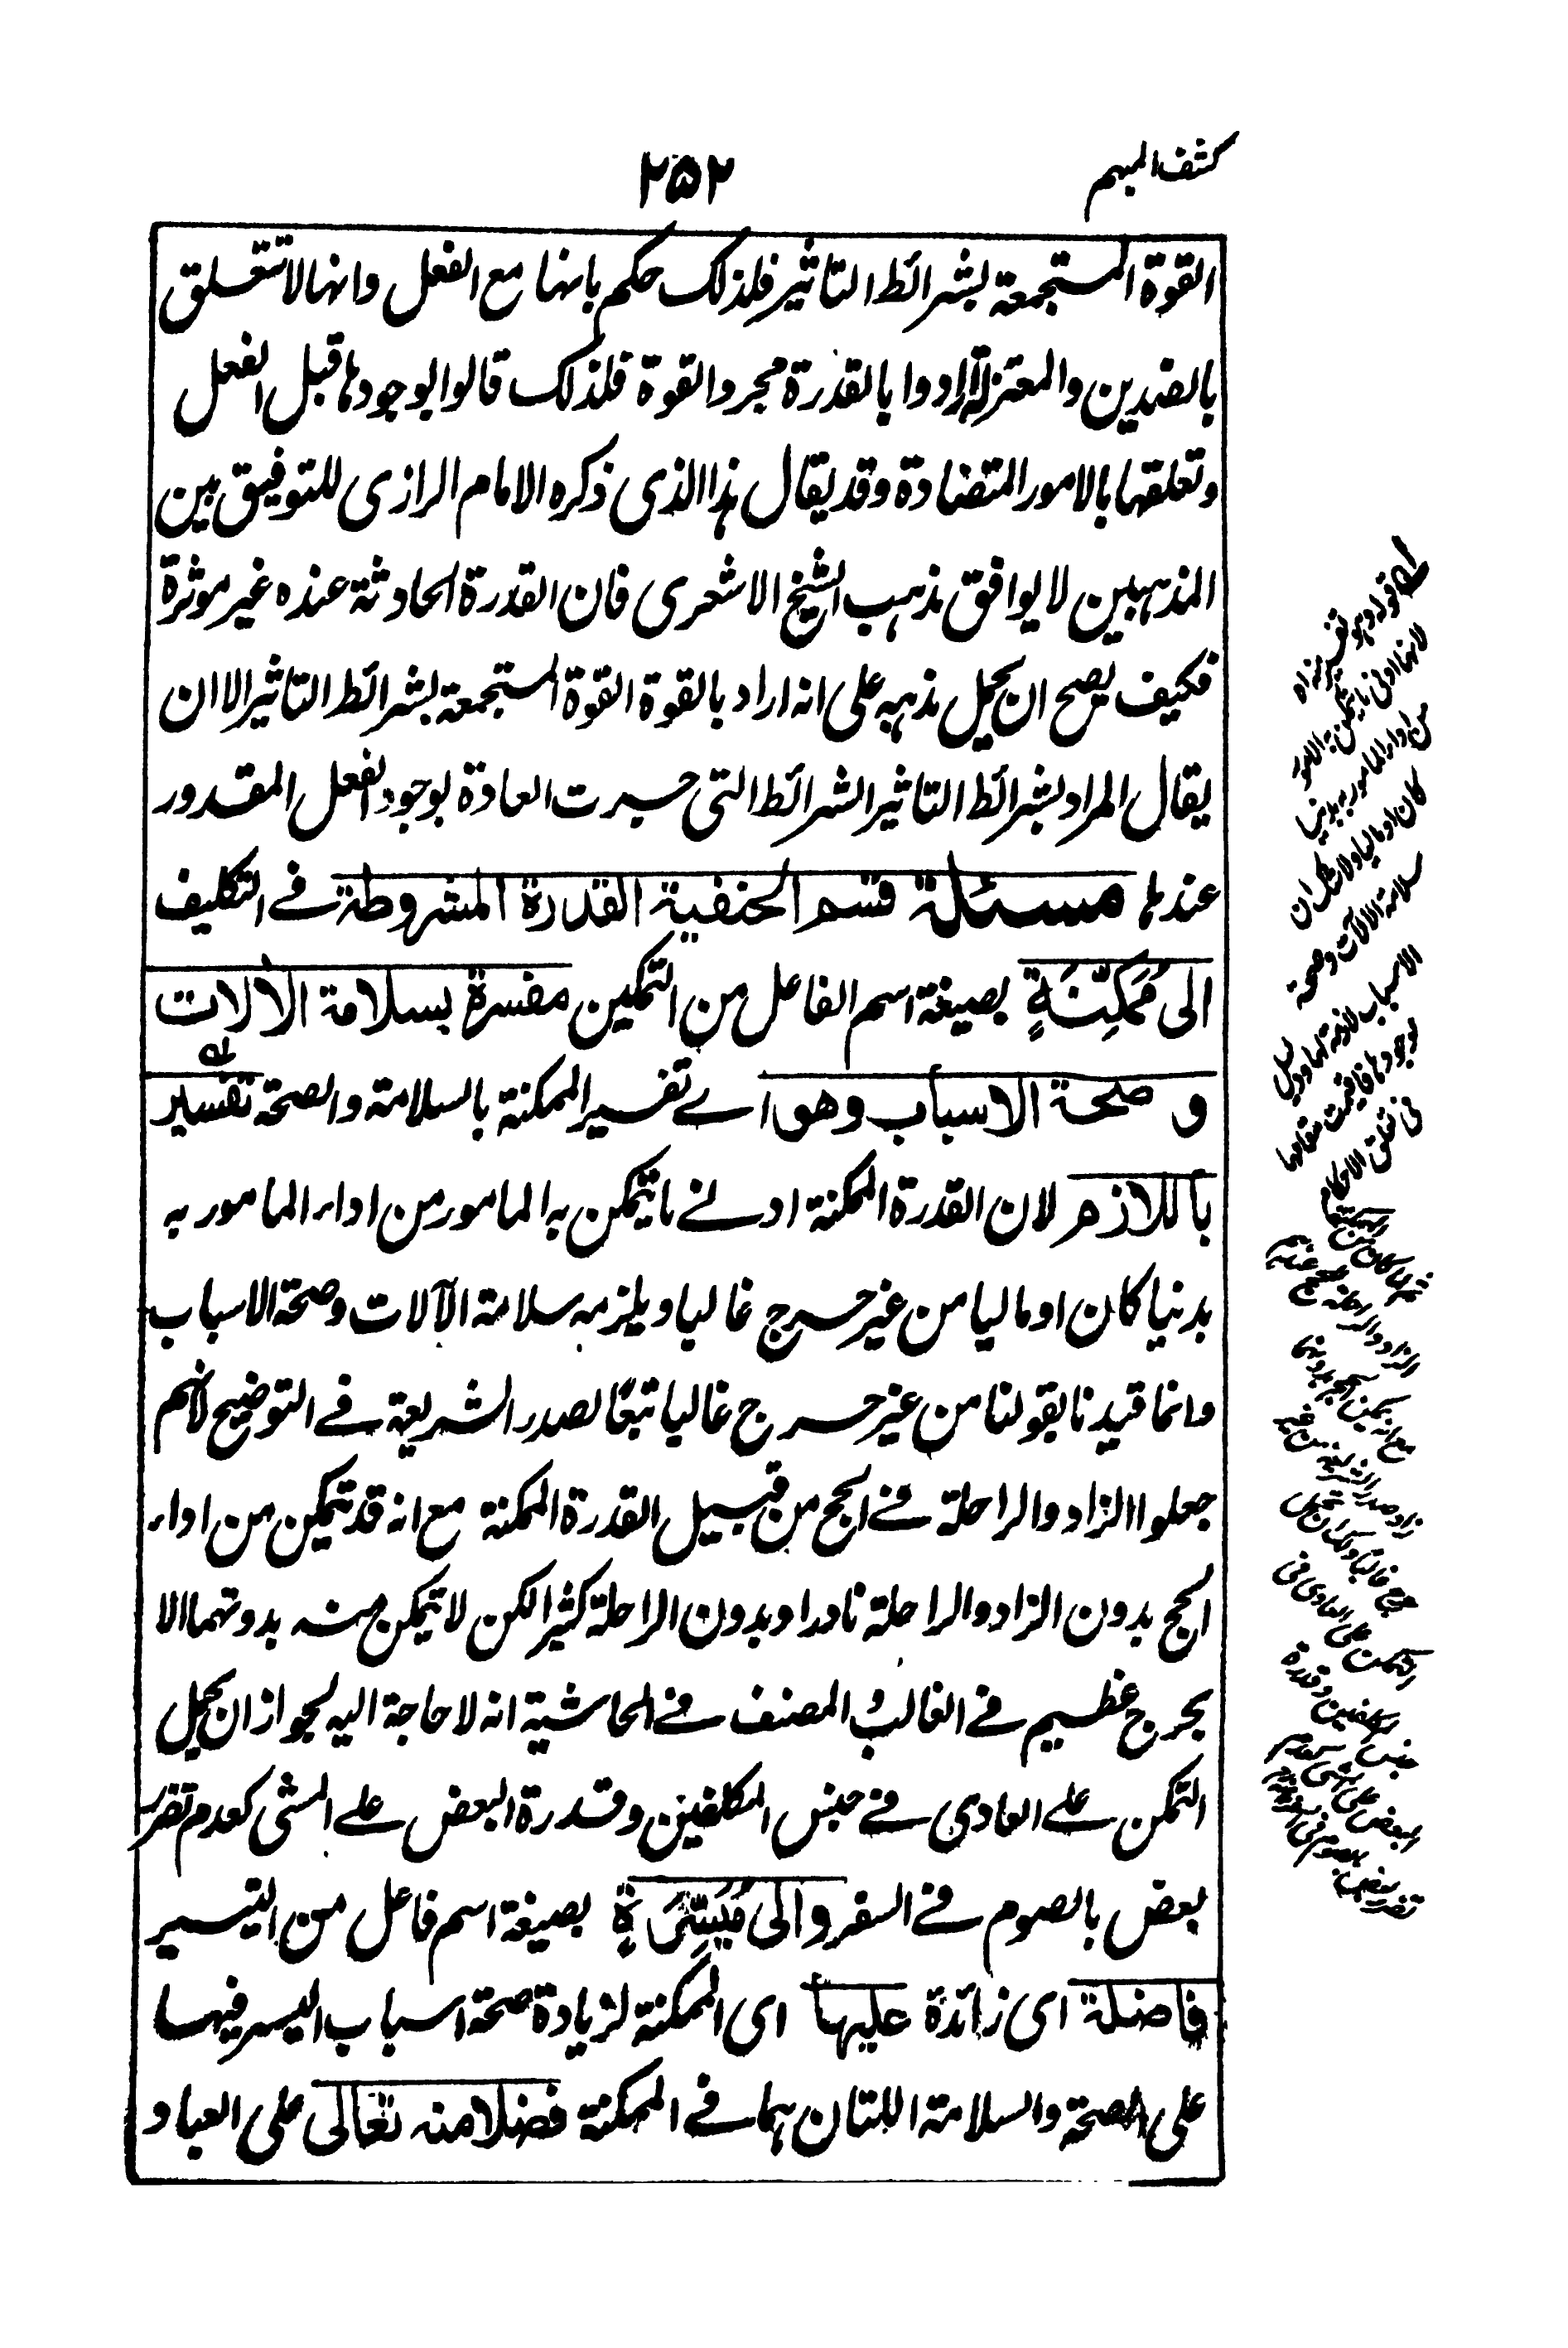 كشف المبهم
٢٥٢
القوة المستجمعة بشرائط التاثير فلذلك حكم بانها مع الفعل وانها لا تتعلق
بالضدين والمعتزلة ارادوا بالقدرة مجرد القوة فلذلك قالوا بوجودها قبل الفعل
وتعلقها بالامور المتضادة وقد يقال هذا الذى ذكره الامام الرازى للتوفيق بين
المذهبين لا يوافق مذهب الشيخ الاشعرى فان القدرة الحادثة عنده غير موثرة
فكيف يصح ان يحمل مذهبه على انه اراد بالقوة القوة المستجمعة بشرائط التاثير الا ان
يقال المراد بشرائط التاثير الشرائط التى جرت العادة بوجود الفعل المقدور
عندها مسئلة قسم الحنفية القدرة المشروطة فى التكليف
الى مُمَكِّنَةٍ بصيغة اسم الفاعل من التمكين مفسرة بسلامة الالات
و صحة الاسباب وهو اے تفسير الممكنة بالسلامة والصحة تفسير
باللازم لان القدرة الممكنة ادنے ما يتمكن به المامور من اداء المامور به
بدنيا كان او ماليا من غير حرج غالبا ويلزمه سلامة الآلات وصحة الاسباب
وانما قيدنا بقولنا من غير حرج غالبا تبعًا لصدر الشريعة فے التوضيح لانهم
جعلوا الزاد والراحلة فے الحج من قبيل القدرة الممكنة مع انه قد يتمكن من اداء
الحج بدون الزاد والراحلة نادرا وبدون الراحلة كثيرا لكن لا يتمكن منه بدونهما الا
بحرج عظيم فے الغالب و المصنف فے الحاشية انه لا حاجة اليه لجواز ان يحمل
التمكن علے العادى فے جنس المكلفين وقدرة البعض علے المشى كعدم تضرر
بعض بالصوم فے السفر والى مُيَسِّرَةٍ بصيغة اسم فاعل من التيسير
فاضلة اى زائدة عليها اى الممكنة لزيادة صحة اسباب اليسر فيها
على الصحة والسلامة اللتان هما فے الممكنة فضلا منه تعالى على العباد
قوله وهو تفسير
لانها ادنى ما يتمكن به المامور
من اداء المامور به بدنيا
كان او ماليا ولا شك ان
سلامة الالات وصحة
الاسباب لازمة لها
بوجودها فاقيمت مقامها
فى تعلق الاحكام